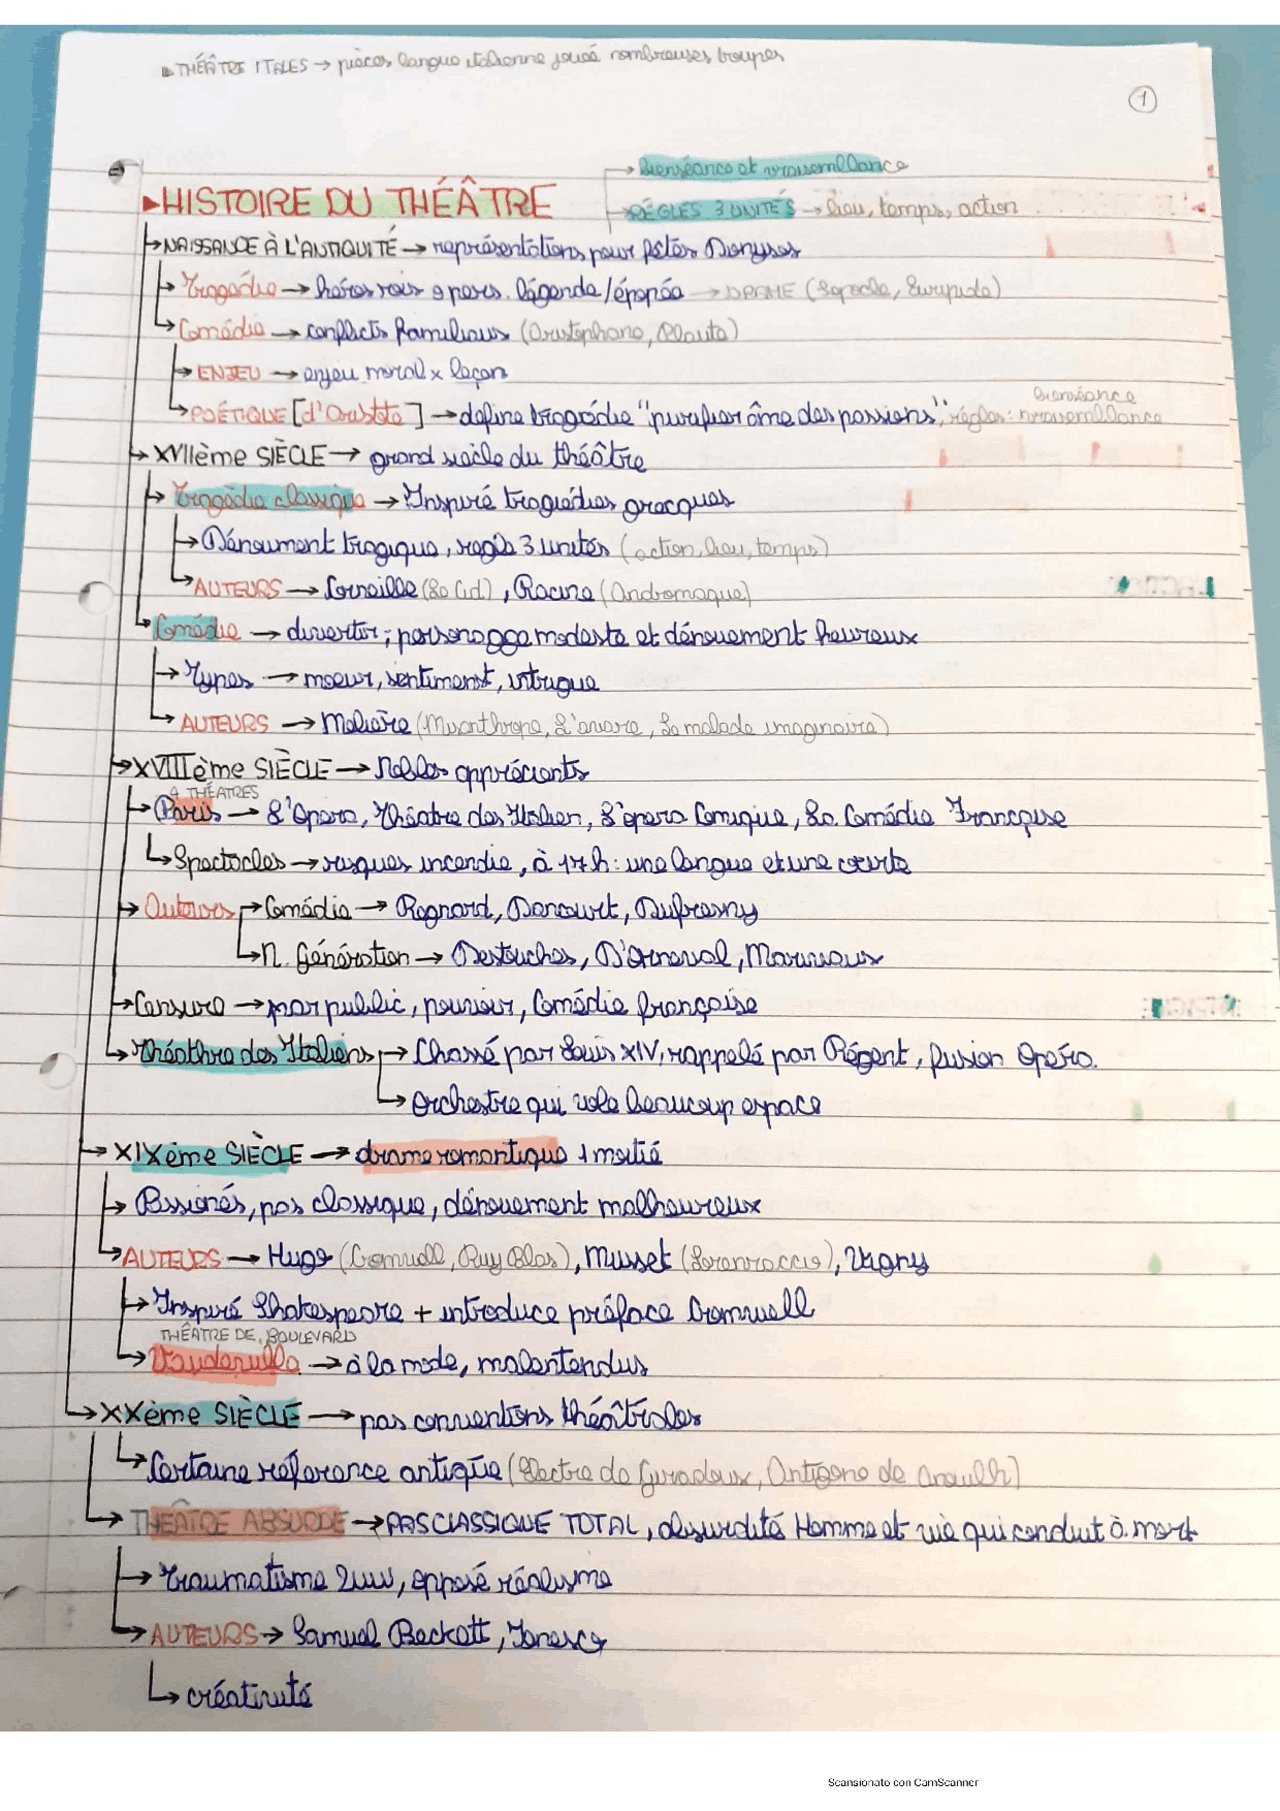 ▸THÉÂTRE ITALES → pièces langue italienne joueé nombreuses troupes
1
→ Bienséance et vraisemblance
▸HISTOIRE DU THÉÂTRE
→ RÉGLES 3 UNITÉS → lieu, temps, action
→ NAISSANCE À L'ANTIQUITÉ → représentations pour fêtes Dionysos
→ Tragédie → héros rois 9 pers. légende/épopée → DRAME (Sofocle, Euripide)
→ Comédie → conflicts familiaux (Aristophane, Plaute)
→ ENJEU → enjeu moral x leçon
→ POÉTIQUE [d'Aristote] → define tragédie "purifier âme des passions", régles: vraisemblance
bienséance
→ XVIIème SIÈCLE → grand siècle du théâtre
→ Tragédie classique → Inspiré tragiédies grecques
→ Dénoument tragique, regis 3 unités (action, lieu, temps)
→ AUTEURS → Corneille (Le Cid), Racine (Andromaque)
→ Comédie → divertir; personagge modeste et dénouement heureux
→ Types → moeur, sentiment, intrigue
→ AUTEURS → Molière (Misanthrope, L'avare, Le malade imaginaire)
→ XVIIIème SIÈCLE → Nobles apprécients
4 THÉATRES
→ Paris → L'Opera, Théatre des Italien, L'opera Comique, La Comédie Françaίse
→ Spectacles → risques incendie, à 17h: une longue et une courte
→ Auteurs → Comédie → Regnard, Dancourt, Dufresny
→ N. Génération → Destouches, D'Orneval, Marivaux
→ Censure → par public, pouvoir, Comédie française
→ Théathre des Italiens → Chassé par Louis XIV, rappelé par Régent, fusion Opéra.
→ Orchestre qui vole beaucoup espace
→ XIXème SIÈCLE → drame romantique 1 moitié
→ Passionés, pas classique, dénouement malheureux
→ AUTEURS → Hugo (Cromwell, Ruy Blas), Musset (Lorenzaccio), Vigny
→ Inspiré Shakespeare + introduce préface Cromwell
THÉÂTRE DE BOULEVARD
→ Vaudeville → à la mode, malentendus
→ XXème SIÈCLE → pas conventions théâtrales
→ Certaine réference antique (Electre de Giradoux, Antigone de Anouilh)
→ THEÂTRE ABSURDE → PAS CLASSIQUE TOTAL, absurdité Homme et vie qui conduit à mort
→ traumatisme 2WW, opposé réalisme
→ AUTEURS → Samuel Beckett, Ionesco
→ créativité
Scansionato con CamScanner